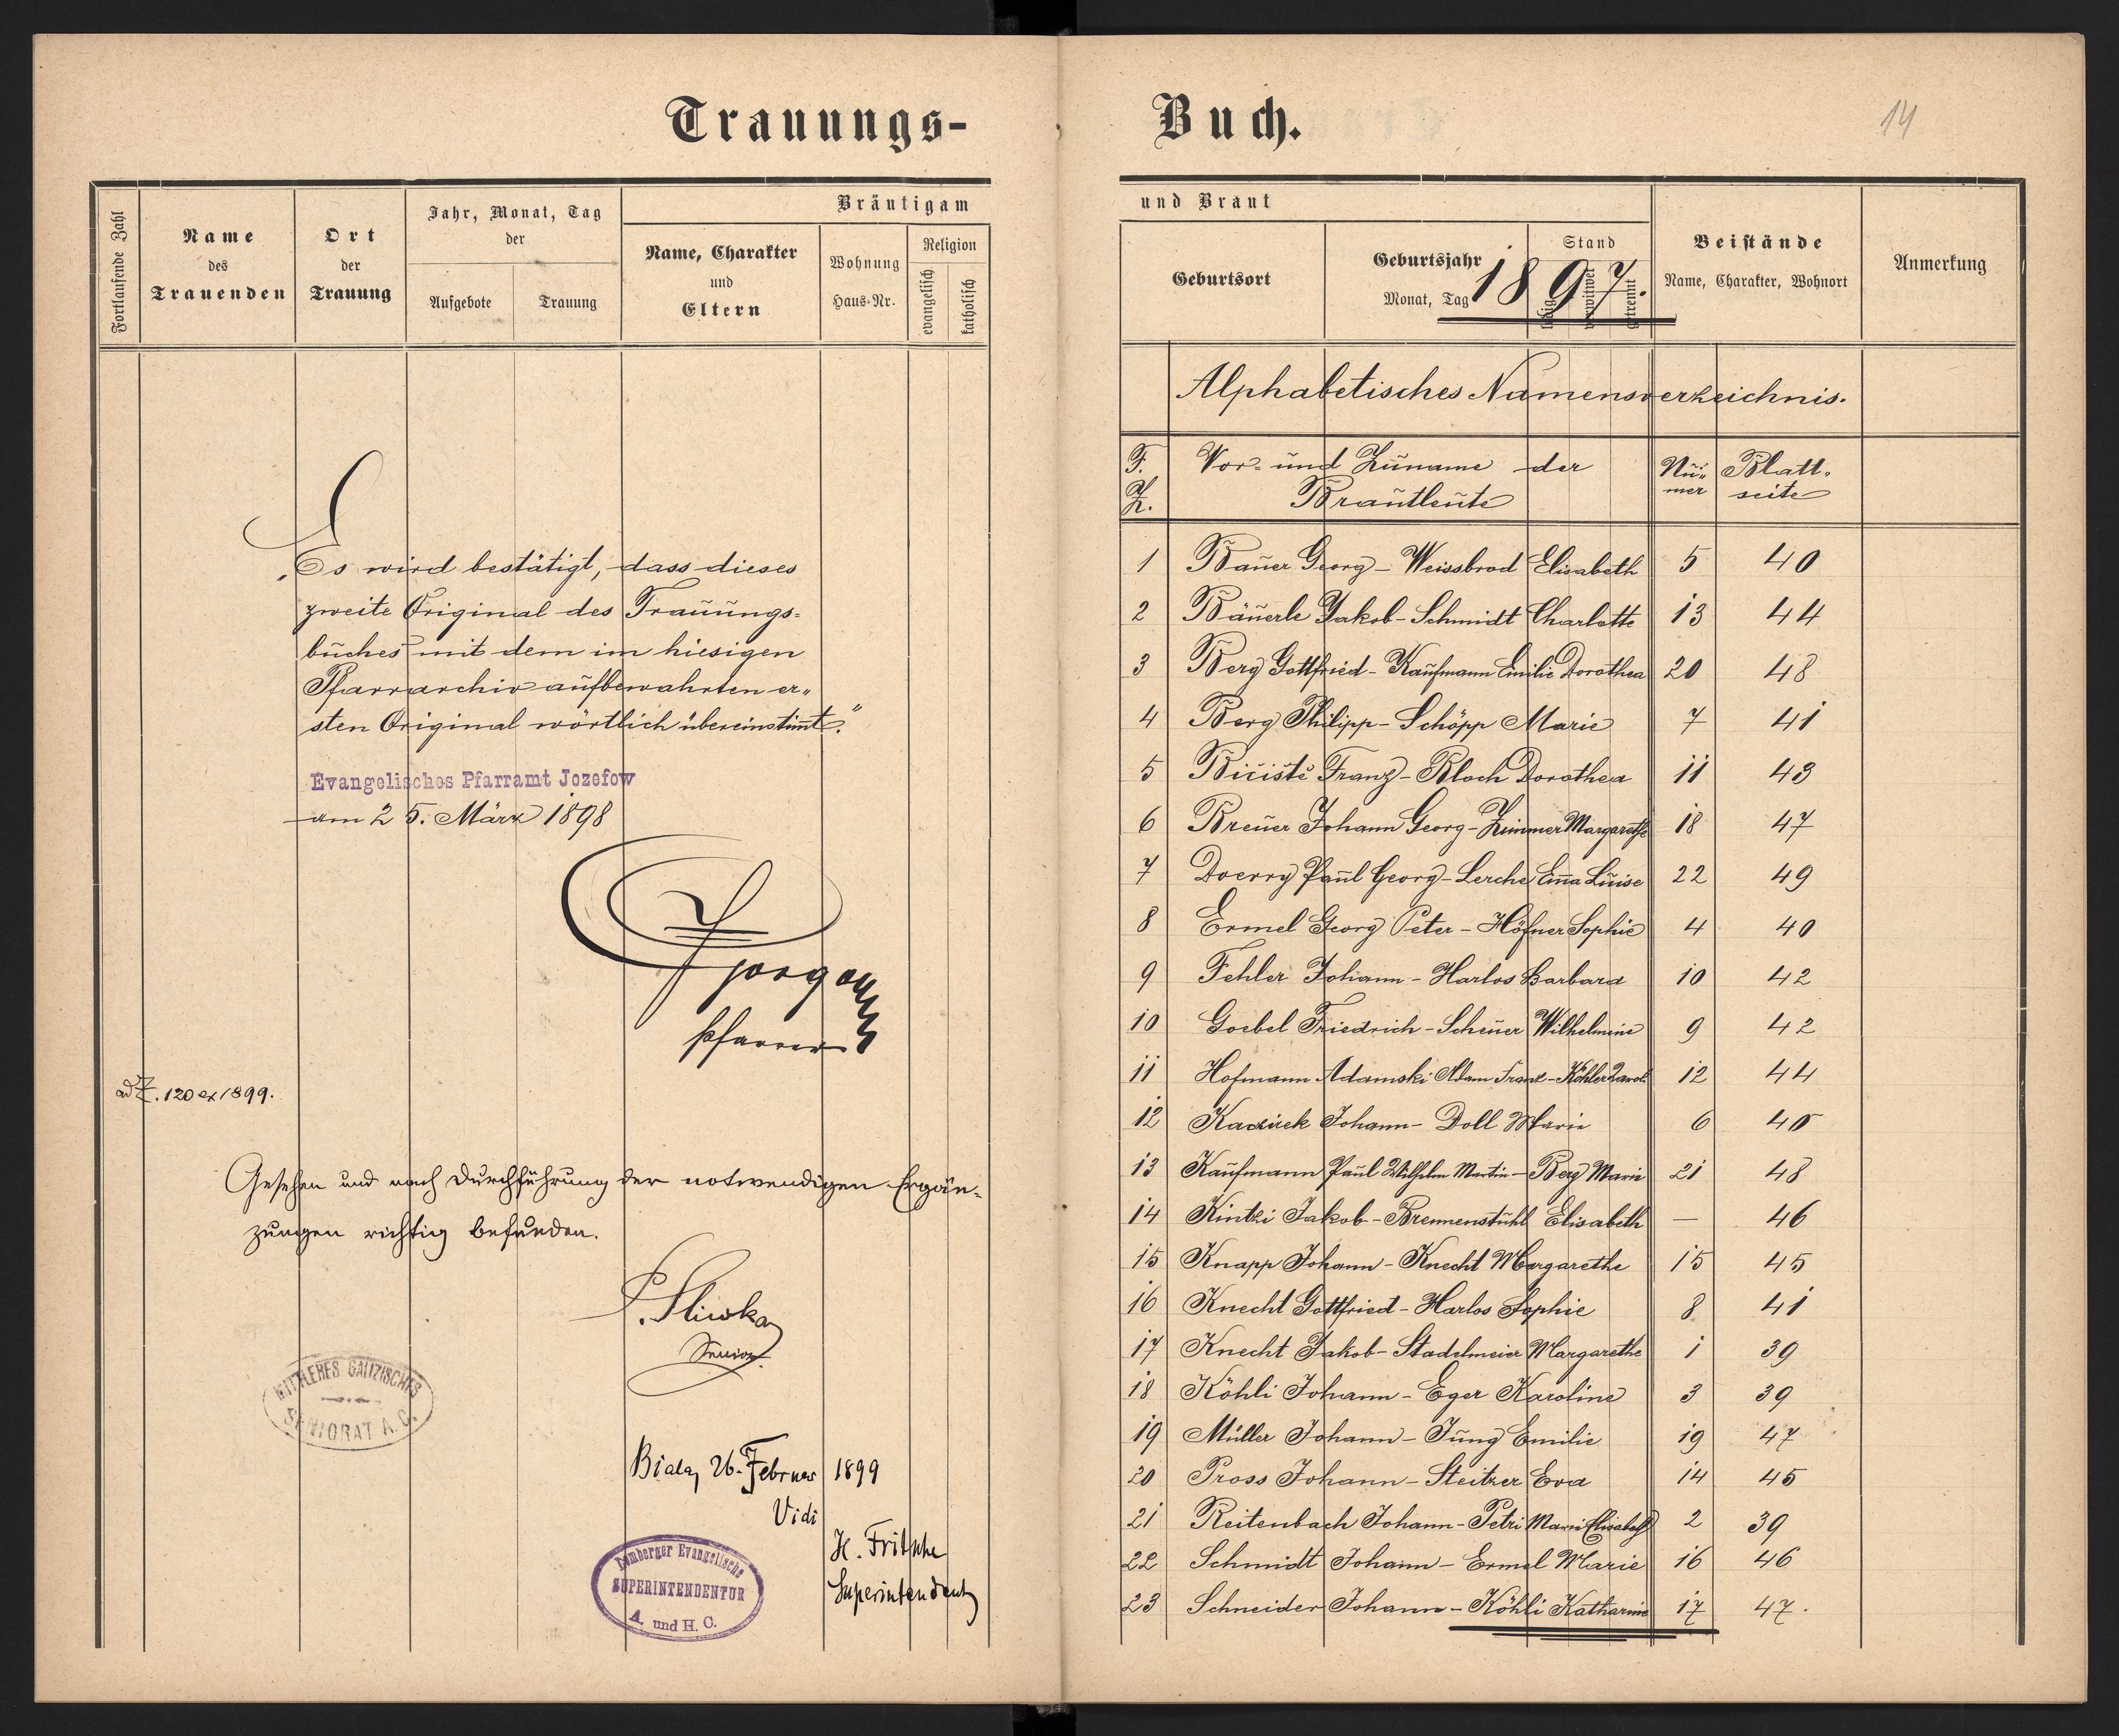 Trauungs-
Fortlaufende Zahl
Name
des
Trauenden
Ort
der
Trauung
Jahr, Monat, Tag
der
Aufgebote
Trauung
Bräutigam
Name, Charakter
und
Eltern
Wohnung
Haus-Nr.
Religion
evangelisch
katholisch
„Es wird bestätigt, dass dieses
zweite Original des Trauungs-
buches mit dem im hiesigen
Pfarrarchiv aufbewahrten er-
sten Original wörtlich übereinstim̄t.“
Evangelisches Pfarramt Jozefow
am 25. März 1898
Pfarrer
ad Z. 120 ex 1899.
Gesehen und nach Durchführung der notwendigen Ergän-
zungen richtig befunden.
Senior.
MITTLERES GALIZISCHES
SENIORAT A. C.
Biala, 26. Februar 1899
Vidi
H. Fritsche
Superintendent
Lemberger Evangelische
SUPERINTENDENTUR
A. und H. C.
Buch.
14
und Braut
Geburtsort
Geburtsjahr
Monat, Tag
1897.
Stand
ledig
verwitwet
getrennt
Beistände
Name, Charakter, Wohnort
Anmerkung
Alphabetisches Namensverzeichnis.
F. Z.
Vor- und Zuname der
Brautleute
Nu-
mer
Blatt-
seite
1 Bauer Georg - Weissbrod Elisabeth 5 40
2 Bäuerle Jakob - Schmidt Charlotte 13 44
3 Berg Gottfried - Kaufmann Emilie Dorothea 20 48
4 Berg Philipp - Schöpp Marie 7 41
5 Franz - Bloch Dorothea 11 43
6 Breuer Johann Georg - Zimmer Margarethe 18 47
7 Doerry Paul Georg - Lerche Em̄a Luise 22 49
8 Ermel Georg Peter - Höfner Sophie 4 40
9 Fehler Johann - Harlos Barbara 10 42
10 Goebel Friedrich - Scheuer Wilhelmine 9 42
11 Hofmann Adamski Adam Franz - Köhler Karol. 12 44
12 Johann - Doll Marie 6 40
13 Kaufmann Paul Wilhelm Martin - Berg Marie 21 48
14 Kintzi Jakob - Brennenstuhl Elisabeth — 46
15 Knapp Johann - Knecht Margarethe 15 45
16 Knecht Gottfried - Harlos Sophie 8 41
17 Knecht Jakob - Stadelmeier Margarethe 1 39
18 Köhli Johann - Eger Karoline 3 39
19 Müller Johann - Jung Emilie 19 47
20 Pross Johann - Steitzer Eva 14 45
21 Reitenbach Johann - Petri Marie Elisabeth 2 39
22 Schmidt Johann - Ermel Marie 16 46
23 Schneider Johann - Köhli Katharine 17 47.